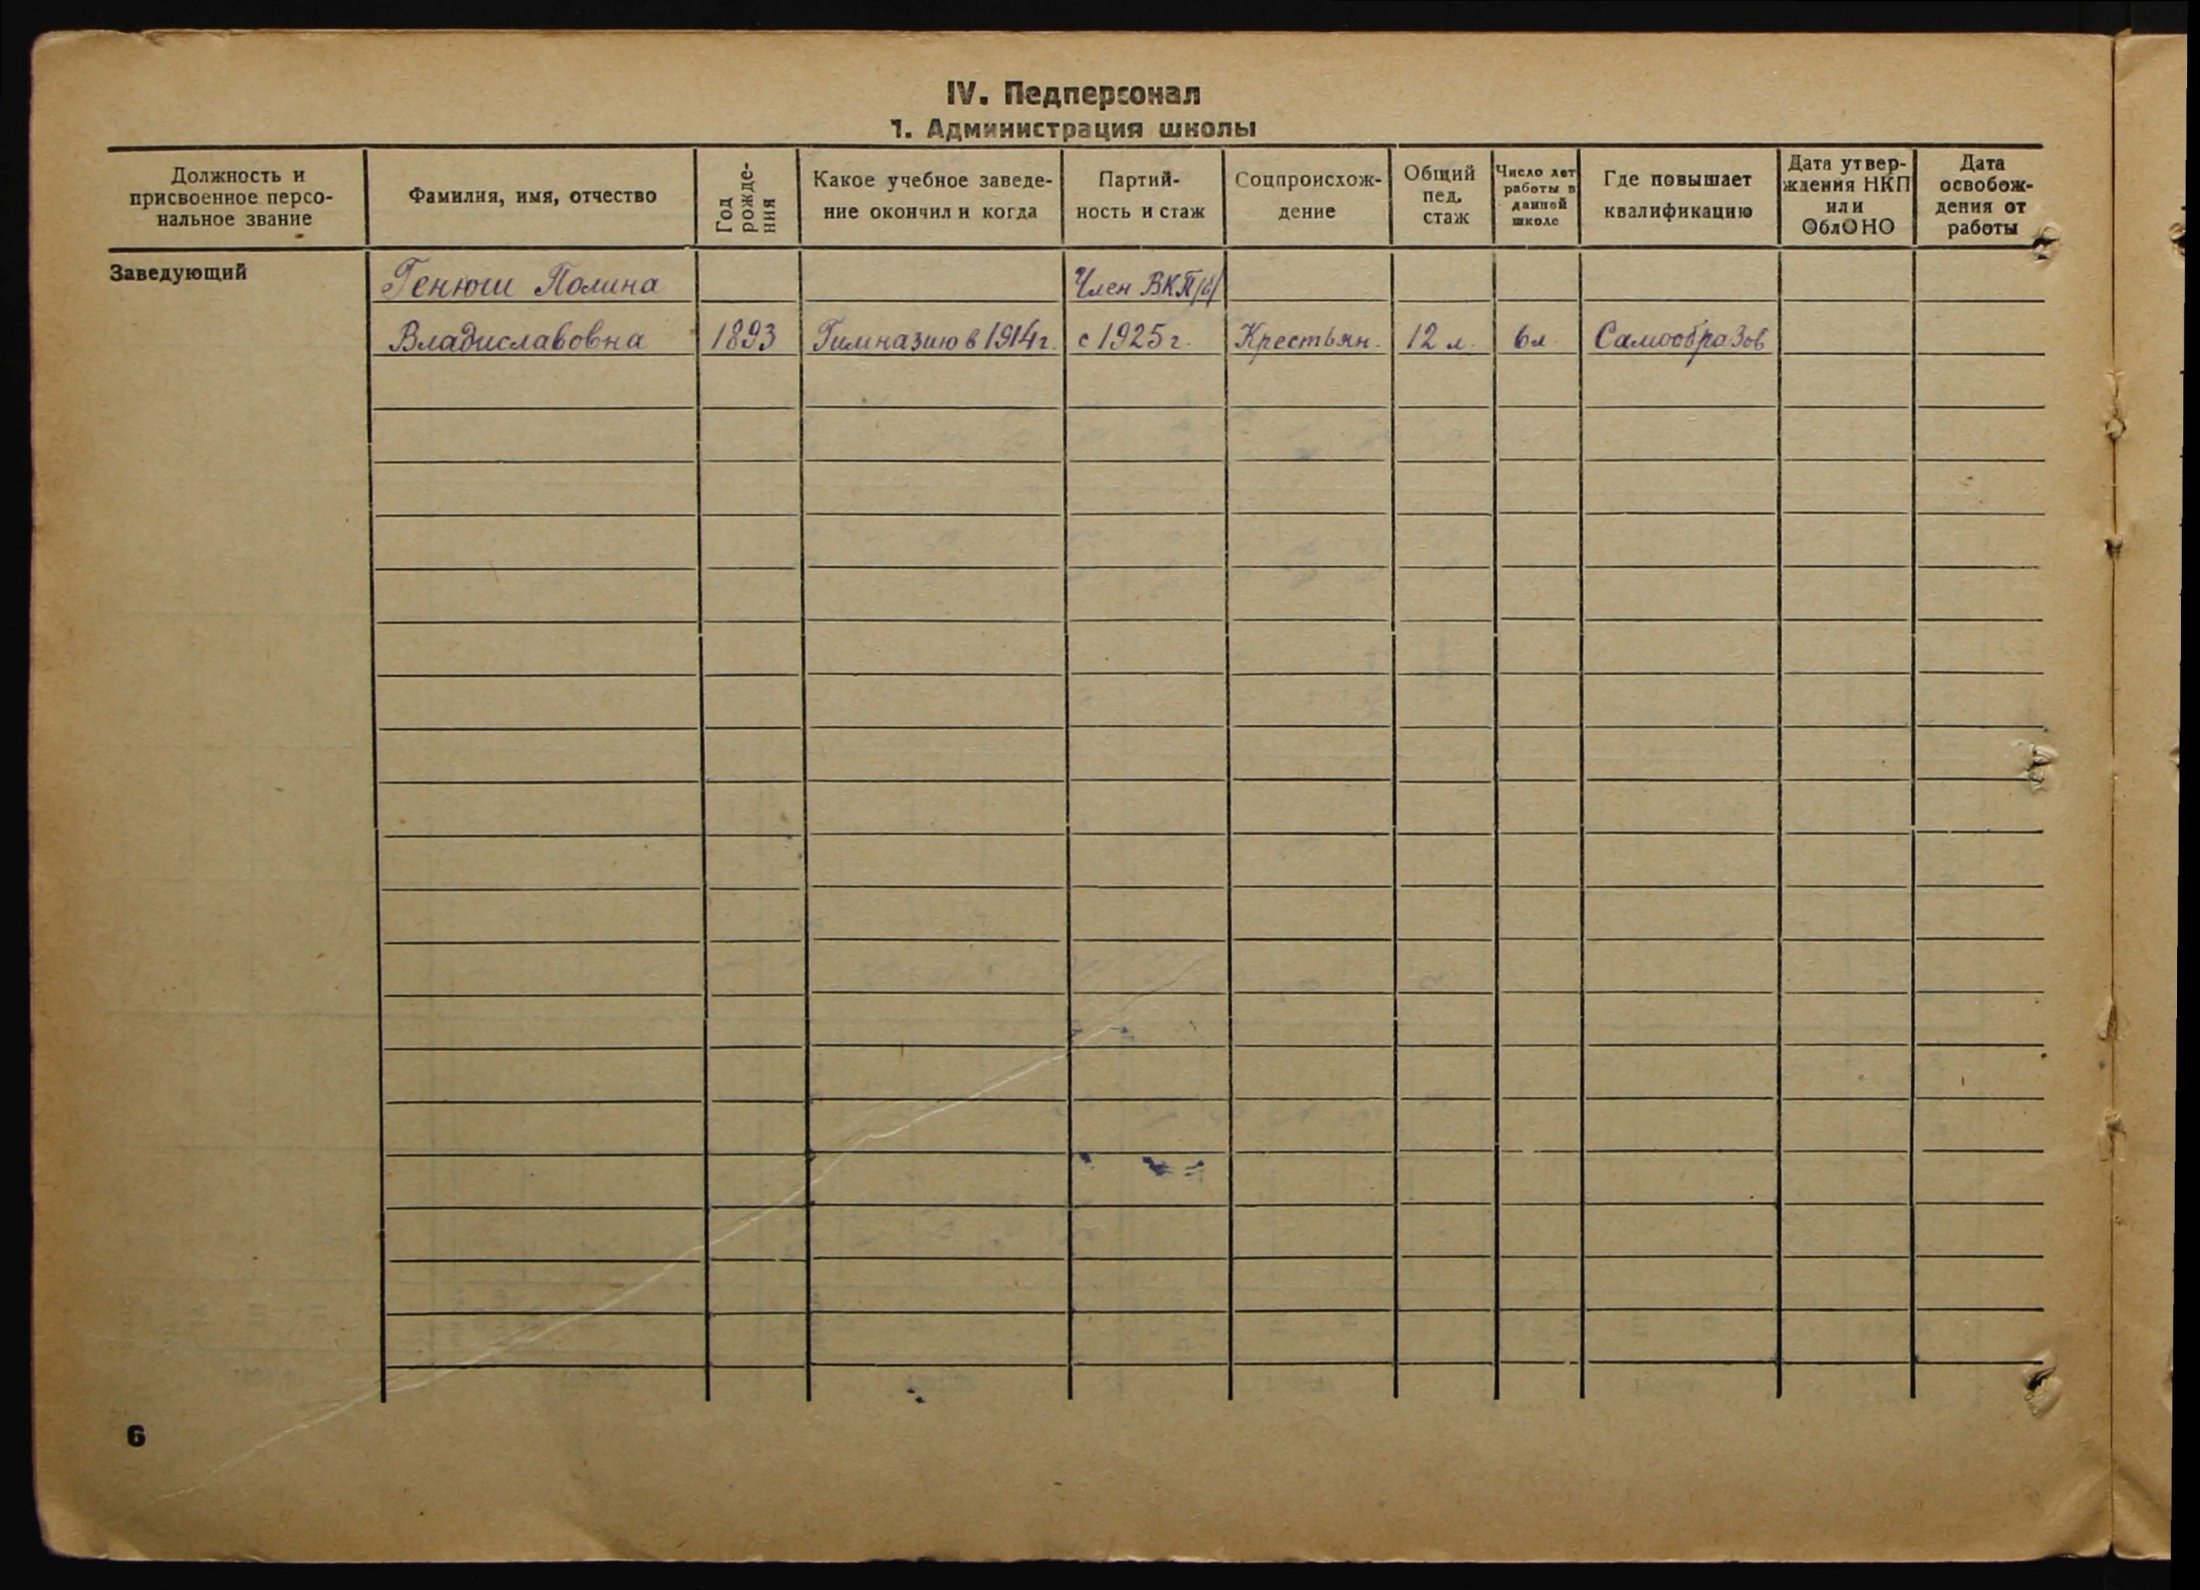 IV. Педперсонал
1. Администрация школы
Должность и
присвоенное персо-
нальное звание
Фамилия, имя, отчество
Год
рожде-
ния
Какое учебное заведе-
ние окончил и когда
Партий-
ность и стаж
Соцпроисхож-
дение
Общий
пед.
стаж
Число лет
работы в
данной
школе
Где повышает
квалификацию
Дата утвер-
ждения НКП
или
ОблОНО
Дата
освобож-
дения от
работы
Заведующий
Генюш Полина
Член ВКП/б/
Владиславовна
1893
Гимназию в 1914 г.
с 1925 г.
Крестьян.
12 л.
6 л
Самообразов
6